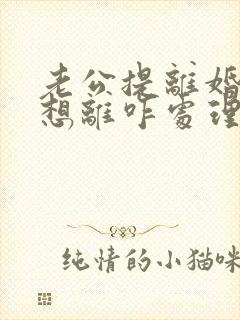 老公提離婚
想離咋處理
純情的小猫咪